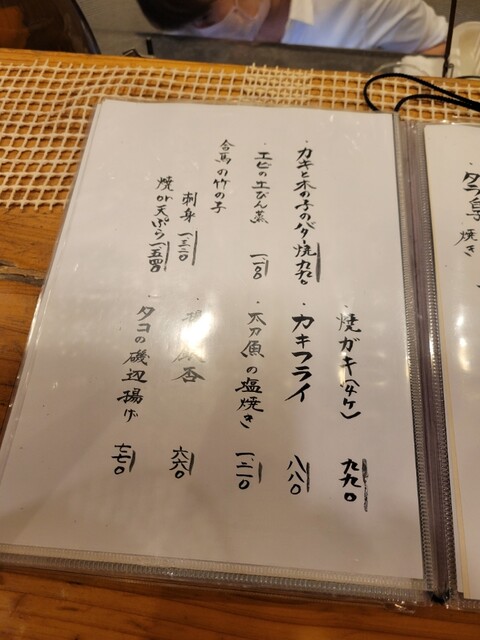 タラ鳥
焼き
・カキと木の子のバター焼 九九〇
・エビの土びん蒸 一一〇〇
合馬の竹の子
刺身 一三二〇
焼or天ぷら 一五四〇
・焼ガキ(4ケ) 九九〇
・カキフライ 八八〇
・太刀魚の塩焼き 一二一〇
六六〇
・タコの磯辺揚げ 七七〇